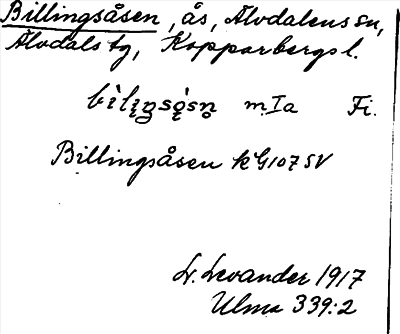 Billingsåsen, ås, Älvdalens sn,
Älvdals tg, Kopparbergs l.
bìlįŋsǫ́sņ m. Ia Fi.
Billingsåsen kG107SV
L. Levander 1917
Ulma 339:2